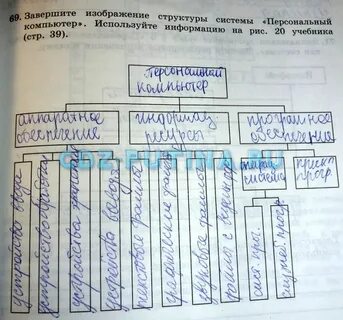 69. Завершите изображение структуры системы «Персональный
компьютер». Используйте информацию на рис. 20 учебника
(стр. 39).
персональный
компьютер
аппаратное
обеспечение
информац.
ресурсы
програмное
обеспечение
устройство ввода
устройство обработки
устройства
устройство вывода
текстовые данные
графические данные
звуковые данные
операц.
система
прикл.
прогр.